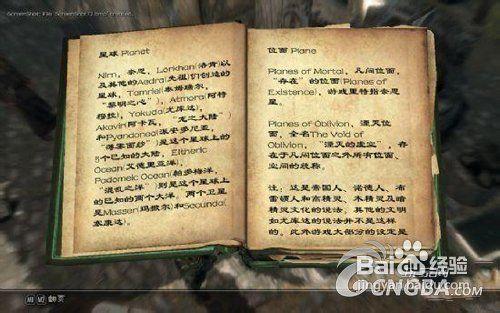 星球 Planet
Nirn，奈恩，Lorkhan(洛肯)以
及其他的Aedra(先祖)们创造的
星球，Tamriel(泰姆瑞尔，
“黎明之心”)，Atmora(阿特
穆拉)，Yokuda(尤库达)，
Akavir(阿卡瓦，“龙之大陆”)
和Pyandonea(派安多尼亚，
“薄雾面纱”)是这个星球上的
5个已知的大陆，Eltheric
Ocean(艾德里亚洋)，
Padomaic Ocean(帕多梅洋，
“混乱之洋”)则是这个星球上
的已知的两个大洋，两个卫星
是Masser(玛撒尔)和Secunda(
赛康达)
位面 Plane
Planes of Mortal，凡间位面，
“存在”的位面(Planes of
Existence)，游戏里特指奈恩
星。
Planes of Oblivion，湮灭位
面，全名The Void of
Oblivion，“湮灭的虚空”，存
在于凡间位面之外所有位面、
空间的统称。
注，这是帝国人、诺德人、布
雷顿人和高精灵、木精灵及暗
精灵文化的说法，其他的文明
如尤库达的说法并不是这样
的。此外游戏大部分的设定是
翻页
Baidu经验
jingyan.baidu.com
GMBA.com